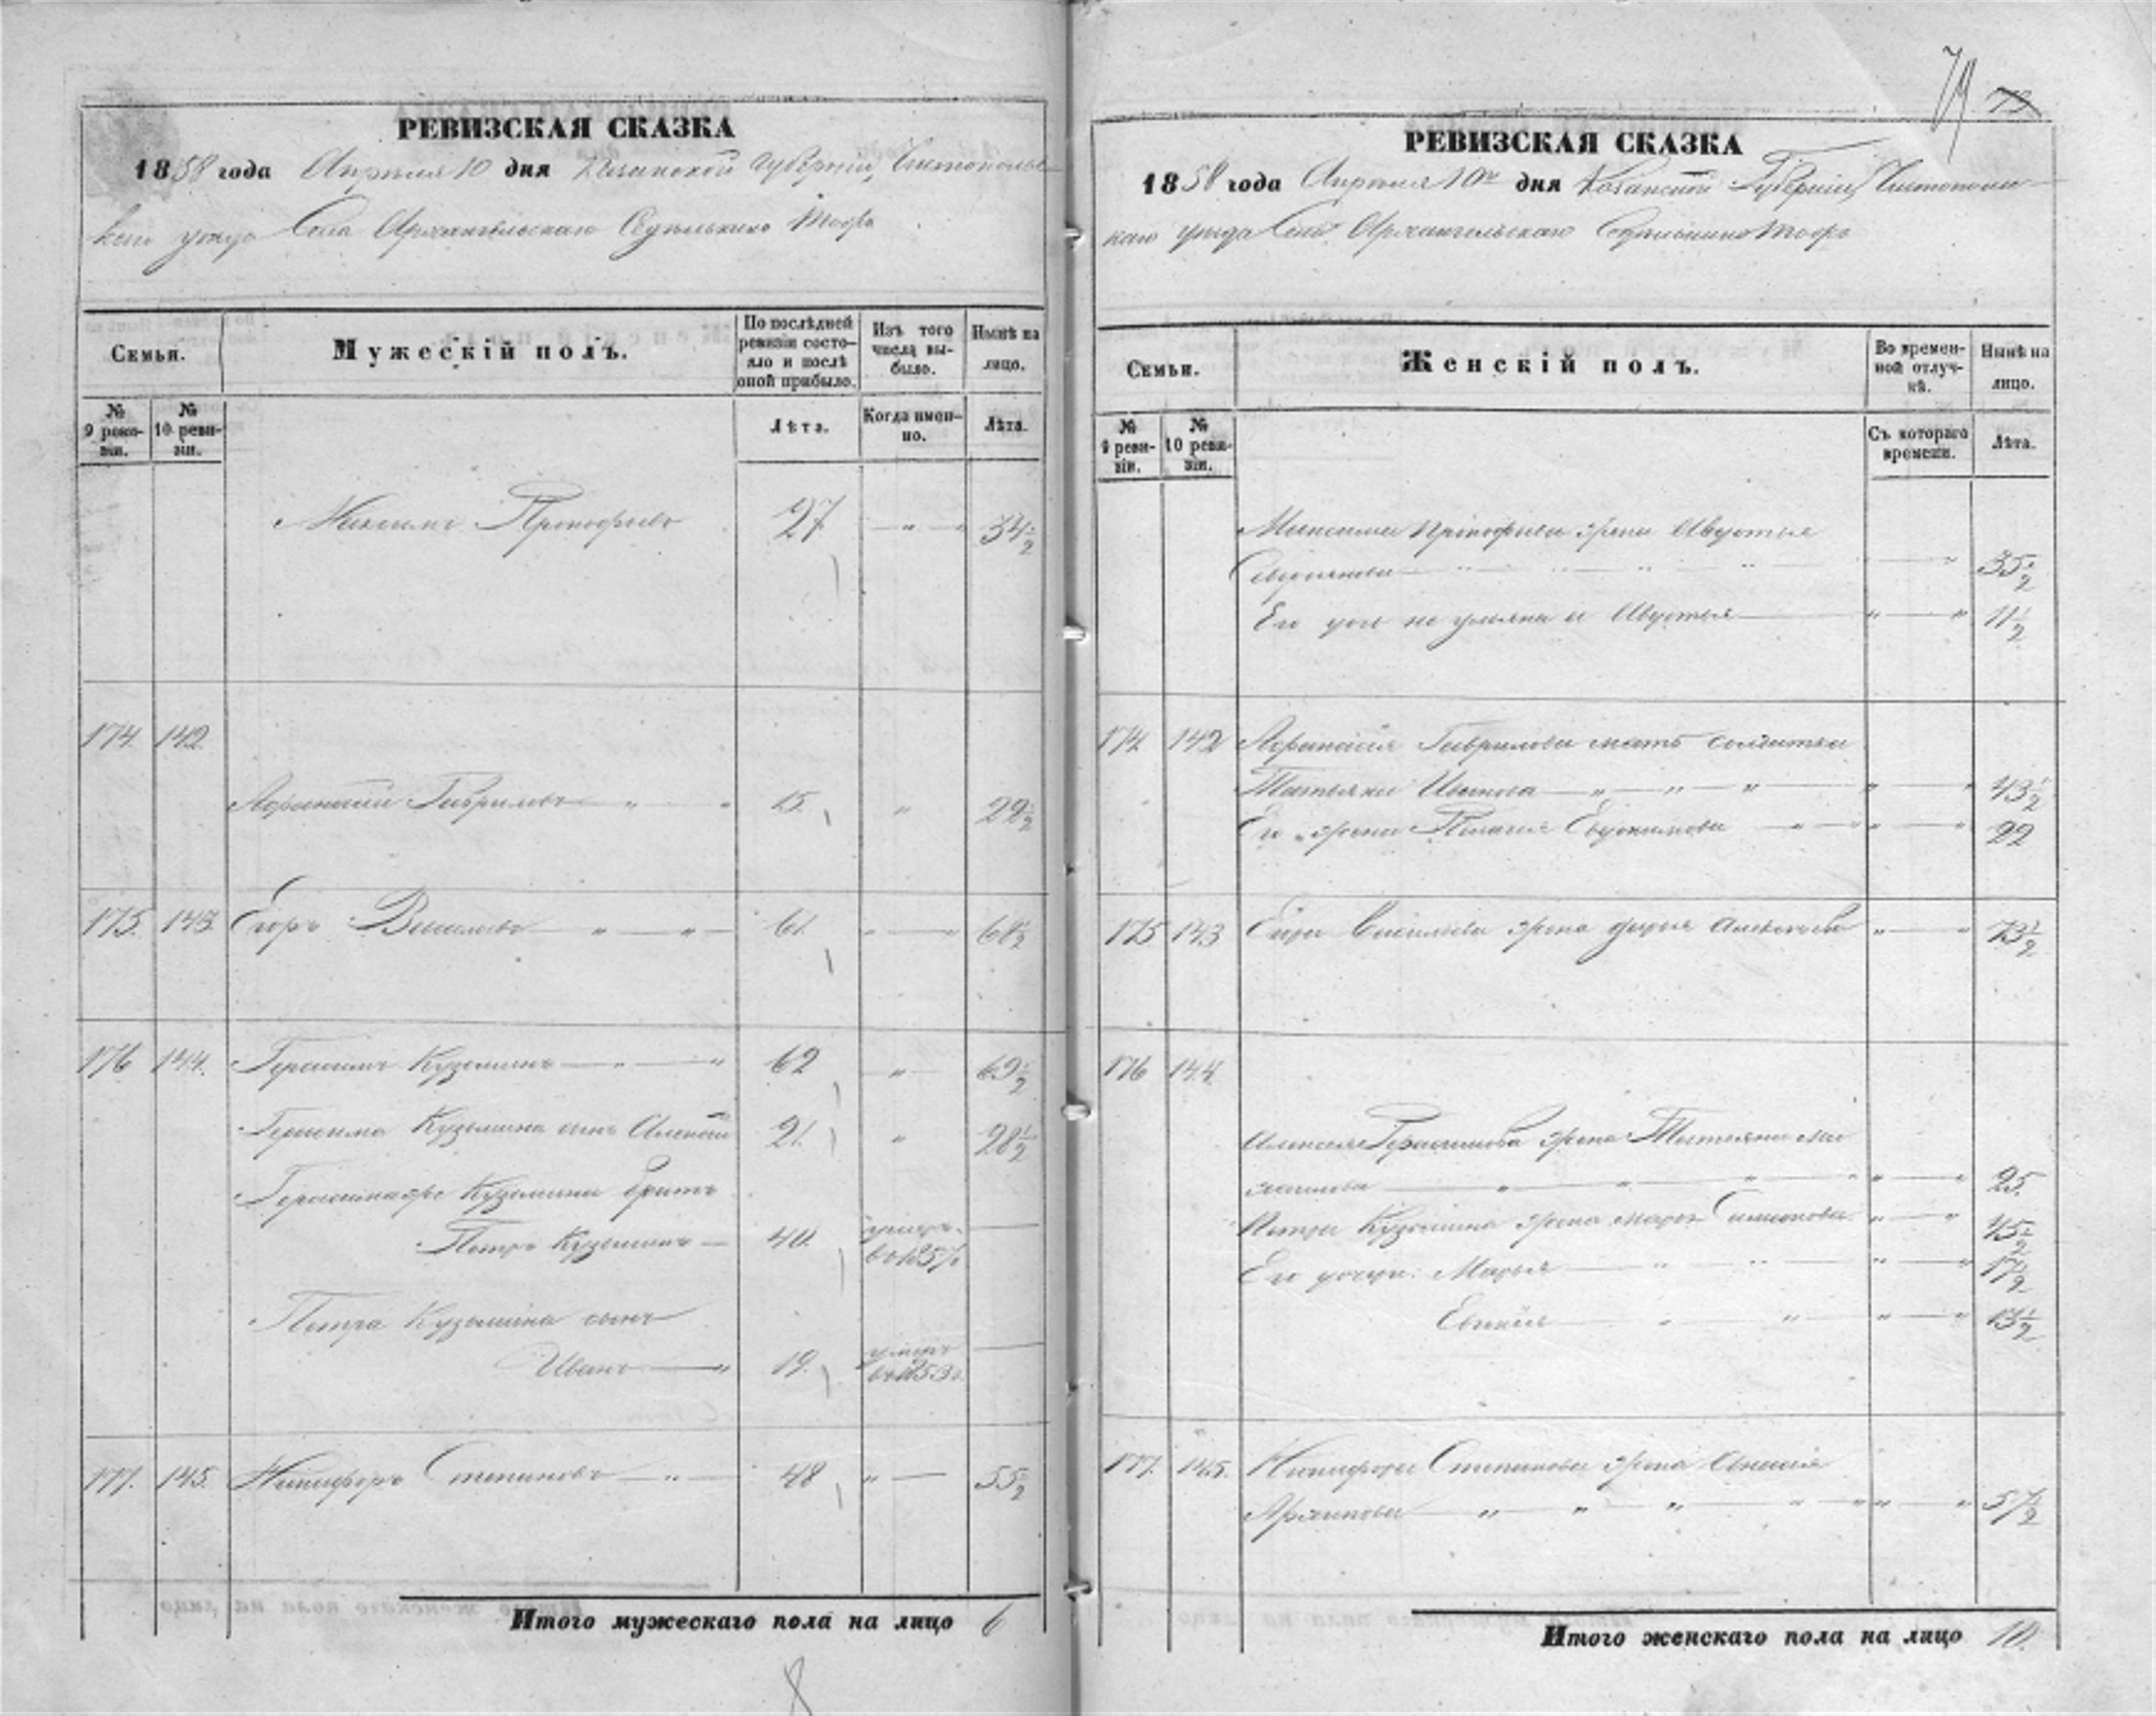 РЕВИЗСКАЯ СКАЗКА
1858 года Апреля 10 дня Казанской Губернiи, Чистопольс-
каго уезда Села Архангельскаго
Семьи.
Мужескiй полъ.
По послѣдней ревизiи состояло и послѣ оной прибыло.
Изъ того числа выбыло.
Нынѣ на лицо.
№ 9 ревизiи.
№ 10 ревизiи.
Лѣта.
Когда именно.
Лѣта.
Максимъ Прокофьевъ 27 34½
174. 142.
Афанасiй Гавриловъ 15. 22½
175. 143. Егоръ Васильевъ 61. 68½
176 144. Герасимъ Кузьминъ 62 69½
Герасима Кузьмина сынъ Алексѣй 21. 28½
Герасима же Кузьмина братъ
Петръ Кузьминъ 40. умеръ
Петра Кузьмина сынъ
Иванъ 19. умеръ
въ 1853 г.
177. 145. Никифоръ Степановъ 48 55½
Итого мужескаго пола на лицо 6
8
79 73
РЕВИЗСКАЯ СКАЗКА
1858 года Апреля 10го дня Казанской Губернiи Чистопольс-
каго уезда Села Архангельскаго
Семьи.
Женскiй полъ.
Во временной отлучкѣ.
Нынѣ на лицо.
№ 9 ревизiи.
№ 10 ревизiи.
Съ котораго времени.
Лѣта.
Максима Прокофьева жена Авдотья
35½
Его Авдотья 11½
174 142 Афанасья Гаврилова мать солдатка
Татьяна Иванова 43½
Его жена Евдокимова 22
175 143 Егора Васильева жена Дарья 73½
176 144.
Алексея Герасимова жена Татьяна
25.
Петра Кузьмина жена 45½
Его дочери: Марья 17½
13½
177. 145. Никифора Степанова жена
Архипова 57½
Итого женскаго пола на лицо 10.